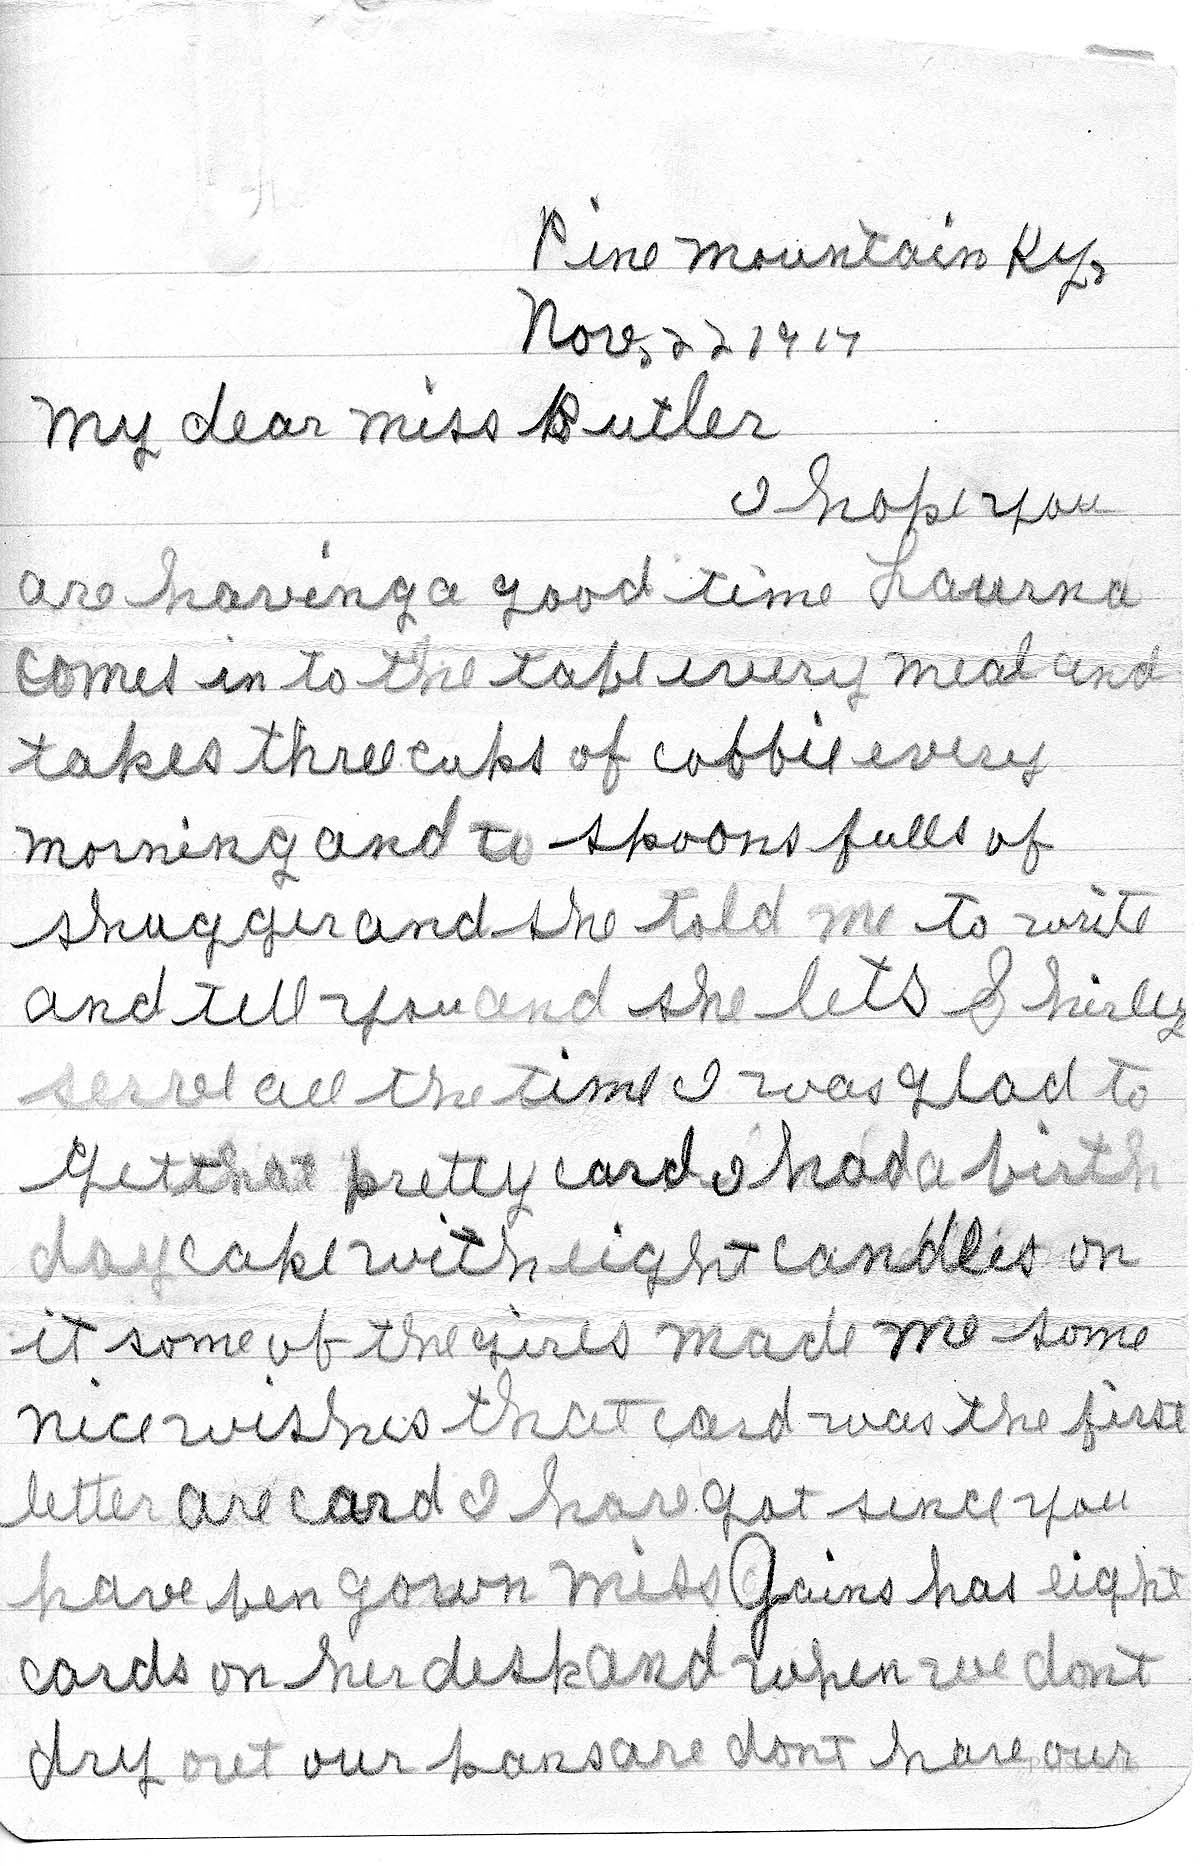 Pine mountain Ky,
Nov, 22 1917
My dear miss Butler
I hope you
are having a good time Laurna
comes in to the table every meal and
takes three cups of cobbie every
morning and to spoons fulls of
shugger and she told me to write
and tell you and she lets Shirley
serve all the time I was glad to
get that pretty card I had a birth
day cake with eight candles on
it some of the girls made me some
nice wishes that card was the first
letter are card I have got since you
have ben gown miss Gains has eight
cards on her desk and when we dont
dry out our pans are dont have our